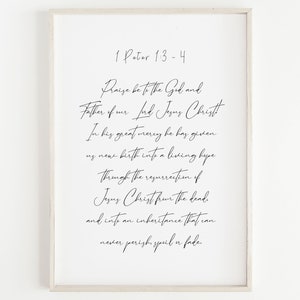 1 Peter 1:3-4
Praise be to the God and
Father of our Lord Jesus Christ!
In his great mercy he has given
us new birth into a living hope
through the resurrection of
Jesus Christ from the dead,
and into an inheritance that can
never perish, spoil or fade.